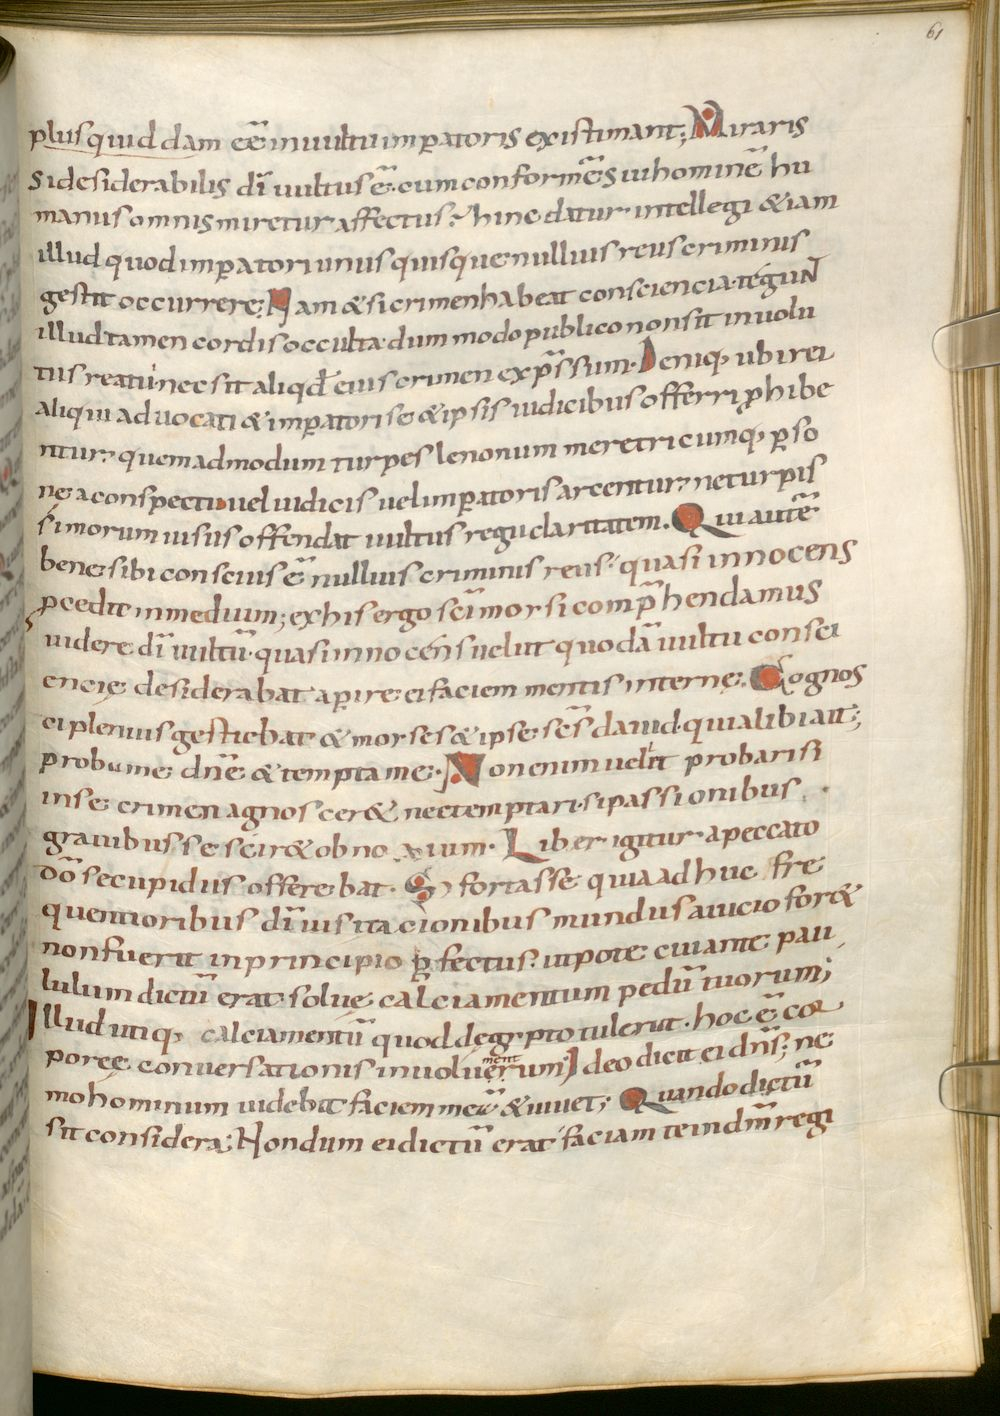 61
plus quiddam eē in uultu imꝑatoris existimant; Miraris
si desiderabilis dī uultus ē. cum conformēs ui hominē hu
manus omnis miretur affectus? hinc datur intellegi &iam
illud quod imꝑatori unus quisque nullius reus criminis
gestit occurrere; Nam & si crimen habeat consciencia. tegunt
illud tamen cordis occulta. dum modo publico non sit inuolu
tus reatu nec sit aliqđ eius crimen exp̄ssum. Deniq; ubi rei
aliqui aduocati & imꝑatori se & ipsis iudicibus offerri ꝓhibe
ntur. quemadmodum turpes lenonum meretricumq; ꝑso
nę a conspectu uel iudicis uel imꝑatoris arcentur. ne turpis
simorum uisus offendat uultus regu claritatem. Qui autē
bene sibi conscius ē nullius criminis reus. quasi innocens
ꝓcedit in medium; ex his ergo scī morsi comp̄hendamus
uidere dī uultū. quasi innocens uelut quodā uultu consci
encię desiderabat aꝑire ei faciem mentis internę. Cognos
ci plenius gestiebat & morses & ipse scs̄ dauid. qui alibi ait;
proba me dnē & tempta me. Non enim uelit probari si
in se crimen agnoscer& nec temptari. si passionibus
grauibus se scir& obnoxium. Liber igitur a peccato
dō se cupidus offerebat. Et fortasse quia adhuc fre
quentioribus dī uisitacionibus mundus a iucio for&
non fuerit in principio ꝑfectus. utpote cui ante pau
lulum dictū erat. solue calciamentum pedū tuorum;
Illud utiq; calciamentū quod de egypto tulerat. hoc ē cor
poreę conuersationis inuoluerum
ment
Ideo dicit ei dns̄; ne
mo hominum uidebit faciem meā & uiuet; Quando dictū
sit considera; Nondum ei dictū erat faciam te in dm̄ regi